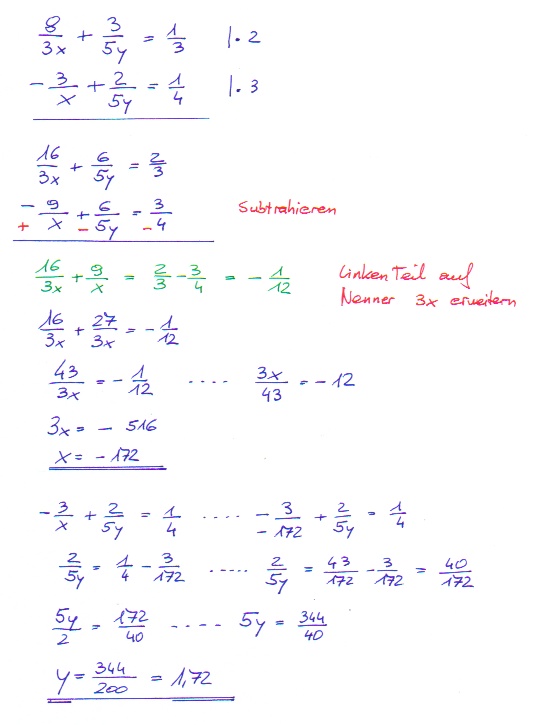 8/3x + 3/5y = 1/3 |· 2
- 3/x + 2/5y = 1/4 |· 3
16/3x + 6/5y = 2/3
- 9/x + 6/5y = 3/4 Subtrahieren
+ - -
16/3x + 9/x = 2/3 - 3/4 = - 1/12 Linken Teil auf
Nenner 3x erweitern
16/3x + 27/3x = - 1/12
43/3x = - 1/12 .... 3x/43 = - 12
3x = - 516
x = - 172
- 3/x + 2/5y = 1/4 .... - 3/-172 + 2/5y = 1/4
2/5y = 1/4 - 3/172 ..... 2/5y = 43/172 - 3/172 = 40/172
5y/2 = 172/40 .... 5y = 344/40
y = 344/200 = 1,72